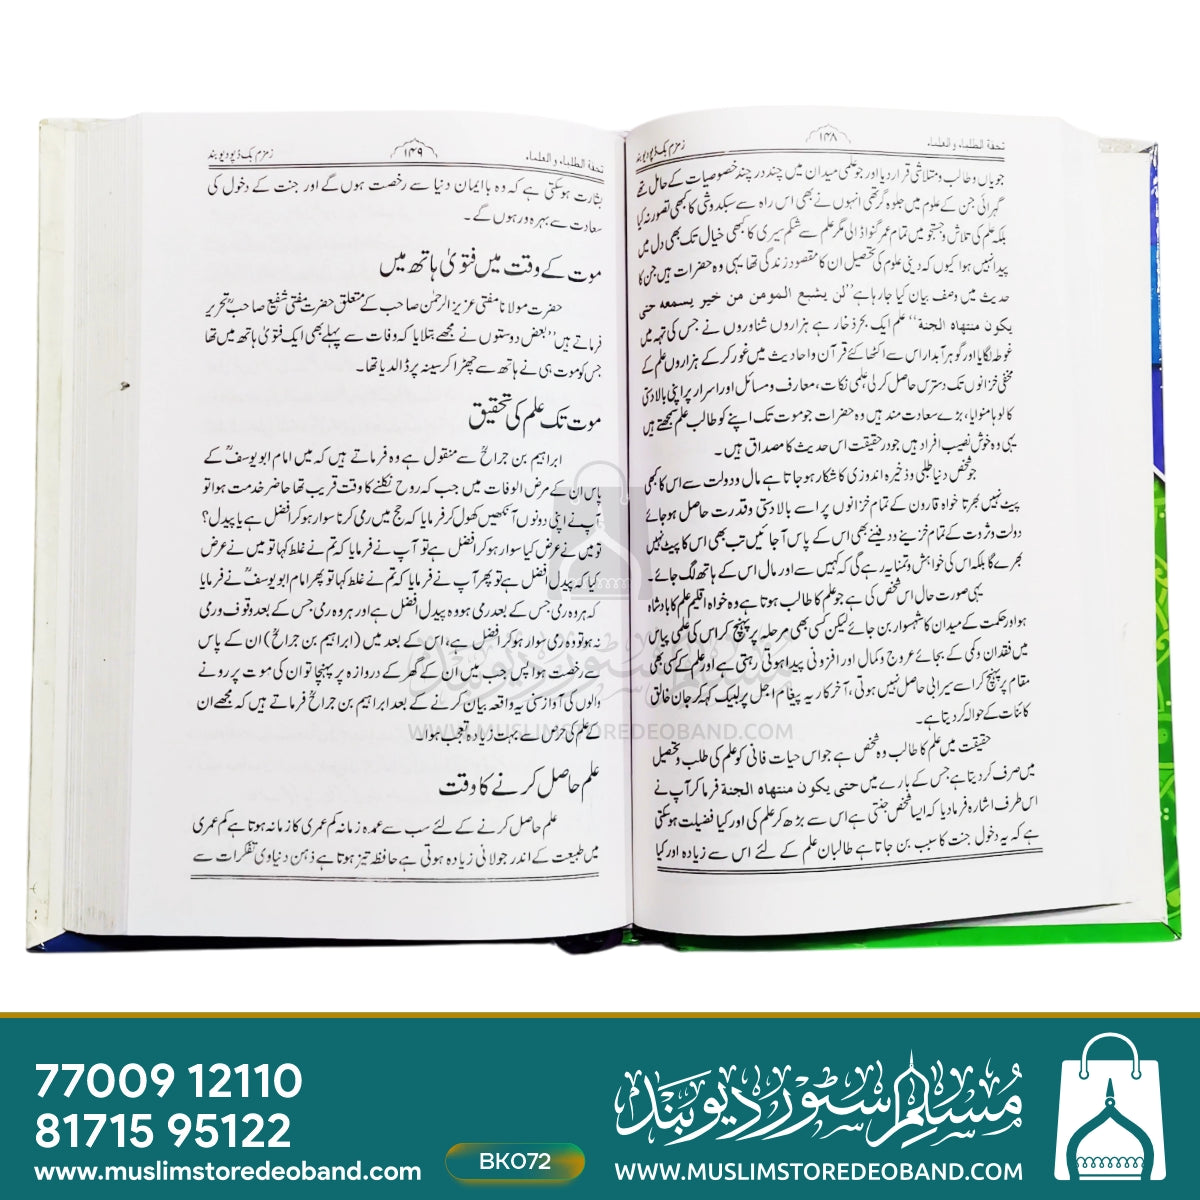 تحفة الطلباء والعلماء ۱۴۸ زمزم بک ڈپو دیوبند
جویاں وطالب ومتلاشی قرار دیا اور جو علمی میدان میں چند در چند خصوصیات کے حامل تھے
گہرائی جن کے علوم میں جلوہ گر تھی انہوں نے بھی اس راہ سے سبکدوشی کا کبھی تصور نہ کیا
بلکہ علم کی تلاش وجستجو میں تمام عمر گنوا ڈالی مگر علم سے شکم سیری کا کبھی خیال تک بھی دل میں
پیدا نہیں ہوا کیوں کہ دینی علوم کی تحصیل ان کا مقصود زندگی تھا یہی وہ حضرات ہیں جن کا
حدیث میں وصف بیان کیا جارہا ہے ’’لن يشبع المومن من خير يسمعه حتى
يكون منتهاه الجنة‘‘ علم ایک بحر ذخار ہے ہزاروں شناوروں نے جس کی تہہ میں
غوطہ لگایا اور گوہر آبدار اس سے اکٹھا کئے قرآن واحادیث میں غور کرکے ہزاروں علم کے
مخفی خزانوں تک دسترس حاصل کرلی علمی نکات، معارف ومسائل اور اسرار پر اپنی بالادستی
کا لوہا منوایا، بڑے سعادت مند ہیں وہ حضرات جو موت تک اپنے کو طالب علم سمجھتے ہیں
یہی وہ خوش نصیب افراد ہیں جو در حقیقت اس حدیث کا مصداق ہیں۔
جو شخص دنیا طلبی وذخیرہ اندوزی کا شکار ہوجاتا ہے مال ودولت سے اس کا کبھی
پیٹ نہیں بھرتا خواہ قارون کے تمام خزانوں پر اسے بالادستی وقدرت حاصل ہوجائے
دولت وثروت کے تمام خزینے ودفینے بھی اس کے پاس آجائیں تب بھی اس کا پیٹ نہیں
بھرے گا بلکہ اس کی خواہش وتمنا یہ رہے گی کہ کہیں سے اور مال اس کے ہاتھ لگ جائے۔
یہی صورت حال اس شخص کی ہے جو علم کا طالب ہوتا ہے وہ خواہ اقلیم علم کا بادشاہ
ہو اور حکمت کے میدان کا شہسوار بن جائے لیکن کسی بھی مرحلہ پر پہنچ کر اس کی علمی پیاس
میں فقدان وکمی کے بجائے عروج وکمال اور افزونی پیدا ہوتی رہتی ہے اور علم کے کسی بھی
مقام پر پہنچ کر اسے سیرابی حاصل نہیں ہوتی، آخر کار یہ پیغام اجل پر لبیک کہہ کر جان خالق
کائنات کے حوالہ کردیتا ہے۔
حقیقت میں علم کا طالب وہ شخص ہے جو اس حیات فانی کو علم کی طلب وتحصیل
میں صرف کردیتا ہے جس کے بارے میں حتى يكون منتهاه الجنة فرما کر آپ نے
اس طرف اشارہ فرمادیا کہ ایسا شخص جنتی ہے اس سے بڑھ کر علم کی اور کیا فضیلت ہوسکتی
ہے کہ یہ دخول جنت کا سبب بن جاتا ہے طالبان علم کے لئے اس سے زیادہ اور کیا
تحفة الطلباء والعلماء ۱۴۹ زمزم بک ڈپو دیوبند
بشارت ہوسکتی ہے کہ وہ باایمان دنیا سے رخصت ہوں گے اور جنت کے دخول کی
سعادت سے بہرہ ور ہوں گے۔
موت کے وقت میں فتویٰ ہاتھ میں
حضرت مولانا مفتی عزیز الرحمٰن صاحب کے متعلق حضرت مفتی شفیع صاحبؒ تحریر
فرماتے ہیں ’’بعض دوستوں نے مجھے بتلایا کہ وفات سے پہلے بھی ایک فتویٰ ہاتھ میں تھا
جس کو موت ہی نے ہاتھ سے چھڑا کر سینہ پر ڈالدیا تھا۔
موت تک علم کی تحقیق
ابراہیم بن جراحؒ سے منقول ہے وہ فرماتے ہیں کہ میں امام ابویوسفؒ کے
پاس ان کے مرض الوفات میں جب کہ روح نکلنے کا وقت قریب تھا حاضر خدمت ہوا تو
آپ نے اپنی دونوں آنکھیں کھول کر فرمایا کہ حج میں رمی کرنا سوار ہوکر افضل ہے یا پیدل؟
تو میں نے عرض کیا سوار ہوکر افضل ہے تو آپ نے فرمایا کہ تم نے غلط کہا تو میں نے عرض
کیا کہ پیدل افضل ہے تو پھر آپ نے فرمایا کہ تم نے غلط کہا تو پھر امام ابویوسفؒ نے فرمایا
کہ ہر وہ رمی جس کے بعد رمی ہو وہ پیدل افضل ہے اور ہر وہ رمی جس کے بعد وقوف ورمی
نہ ہو تو وہ رمی سوار ہوکر افضل ہے، اس کے بعد میں (ابراہیم بن جراحؒ) ان کے پاس
سے رخصت ہوا پس جب میں ان کے گھر کے دروازہ پر پہنچا تو ان کی موت پر رونے
والوں کی آواز سنی یہ واقعہ بیان کرنے کے بعد ابراہیم بن جراحؒ فرماتے ہیں کہ مجھے ان
کے علم کی حرص سے بہت زیادہ تعجب ہوا۔
علم حاصل کرنے کا وقت
علم حاصل کرنے کے لئے سب سے عمدہ زمانہ کم عمری کا زمانہ ہوتا ہے کم عمری
میں طبیعت کے اندر جولانی زیادہ ہوتی ہے حافظہ تیز ہوتا ہے ذہن دنیاوی تفکرات سے
مسلم سٹور دیوبند
WWW.MUSLIMSTOREDEOBAND.COM
77009 12110
81715 95122
www.muslimstoredeoband.com
BK072
مسلم سٹور دیوبند
WWW.MUSLIMSTOREDEOBAND.COM